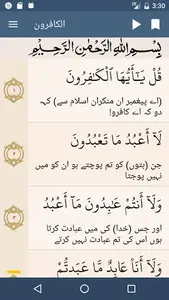 3:30
الكافرون
بِسْمِ اللَّهِ الرَّحْمَٰنِ الرَّحِيمِ
قُلْ يَٰٓأَيُّهَا ٱلْكَٰفِرُونَ
(اے پیغمبر ان منکران اسلام سے) کہہ
دو کہ اے کافرو!
١
لَآ أَعْبُدُ مَا تَعْبُدُونَ
جن (بتوں) کو تم پوجتے ہو ان کو میں
نہیں پوجتا
٢
وَلَآ أَنتُمْ عَٰبِدُونَ مَآ أَعْبُدُ
اور جس (خدا) کی میں عبادت کرتا
ہوں اس کی تم عبادت نہیں کرتے
٣
وَلَآ أَنَا۠ عَابِدٌ مَّا عَبَدتُّمْ